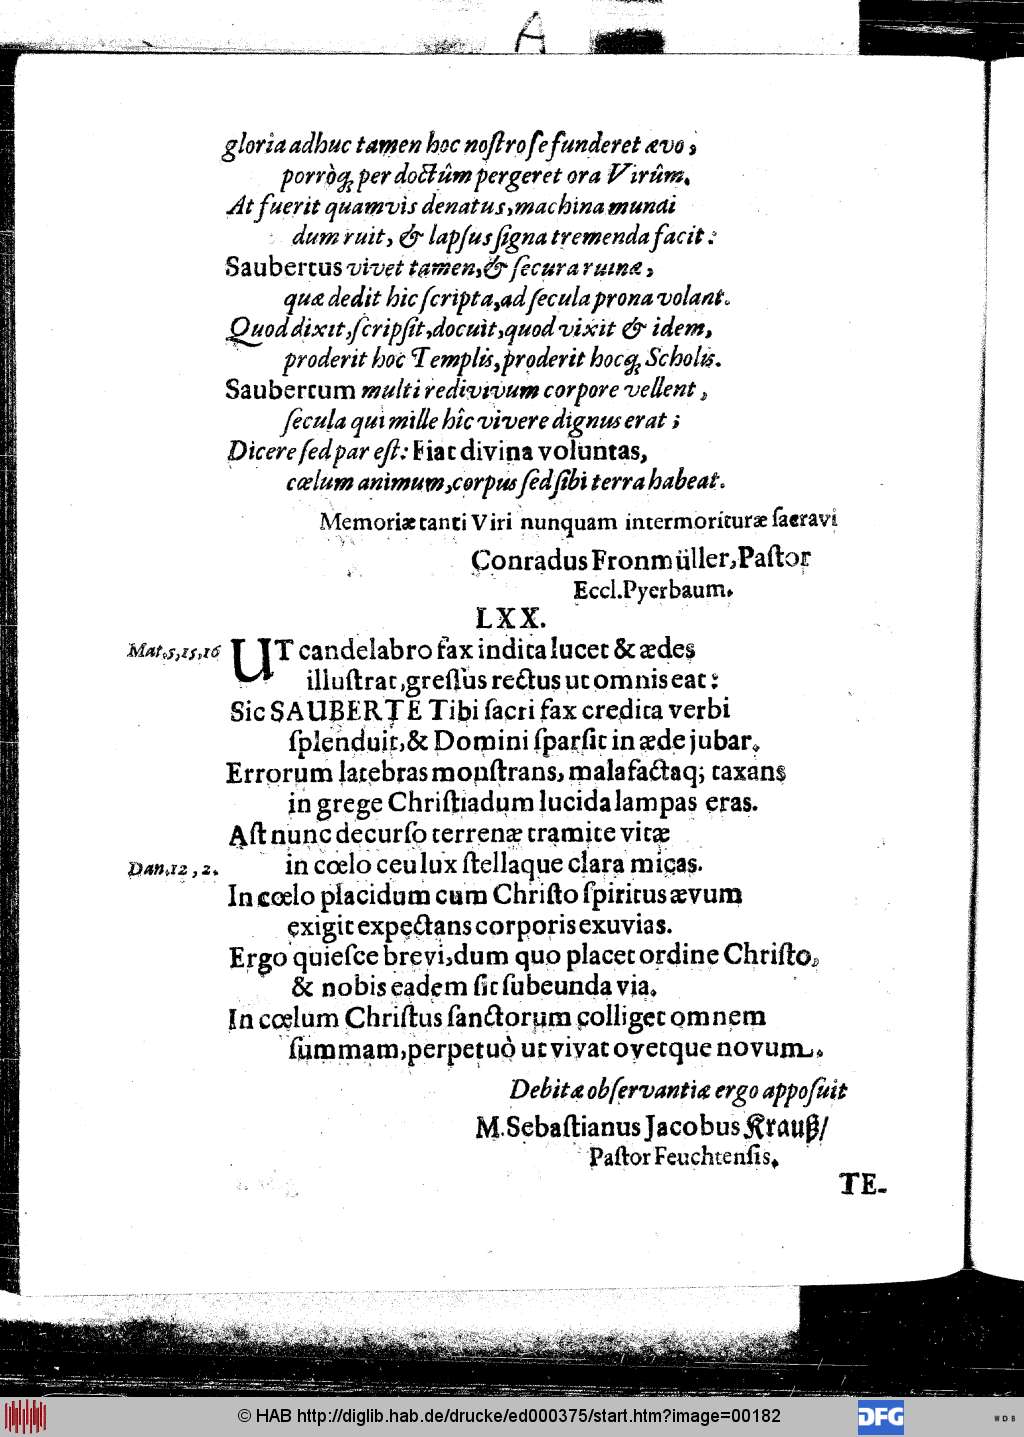 A
gloria adhuc tamen hoc noſtro ſe funderet ævo,
porròq; per doctûm pergeret ora Virûm.
At fuerit quamvis denatus, machina mundi
dum ruit, & lapſus ſigna tremenda facit:
Saubertus vivet tamen, & ſecura ruinæ,
quæ dedit hic ſcripta, ad ſecula prona volant.
Quod dixit, ſcripſit, docuit, quod vixit & idem,
proderit hoc Templis, proderit hocq; Scholis.
Saubertum multi redivivum corpore vellent,
ſecula qui mille hîc vivere dignus erat;
Dicere ſed par eſt: Fiat divina voluntas,
cœlum animum, corpus ſed ſibi terra habeat.
Memoriæ tanti Viri nunquam intermorituræ ſacravi
Conradus Fronmüller, Paſtor
Eccl. Pyerbaum.
LXX.
Mat. 5, 15, 16 UT candelabro fax indita lucet & ædes
illuſtrat, greſſus rectus ut omnis eat:
Sic SAUBERTE Tibi ſacri fax credita verbi
ſplenduit, & Domini ſparſit in æde jubar.
Errorum latebras monſtrans, malafactaq; taxans
in grege Chriſtiadum lucida lampas eras.
Aſt nunc decurſo terrenæ tramite vitæ
Dan. 12, 2. in cœlo ceu lux ſtellaque clara micas.
In cœlo placidum cum Chriſto ſpiritus ævum
exigit expectans corporis exuvias.
Ergo quieſce brevi, dum quo placet ordine Chriſto,
& nobis eadem ſit ſubeunda via.
In cœlum Chriſtus ſanctorum colliget omnem
ſummam, perpetuò ut vivat ovetque novum.
Debitæ obſervantiæ ergo appoſuit
M. Sebaſtianus Jacobus Krauß/
Paſtor Feuchtenſis.
TE-
© HAB http://diglib.hab.de/drucke/ed000375/start.htm?image=00182
DFG
WDB